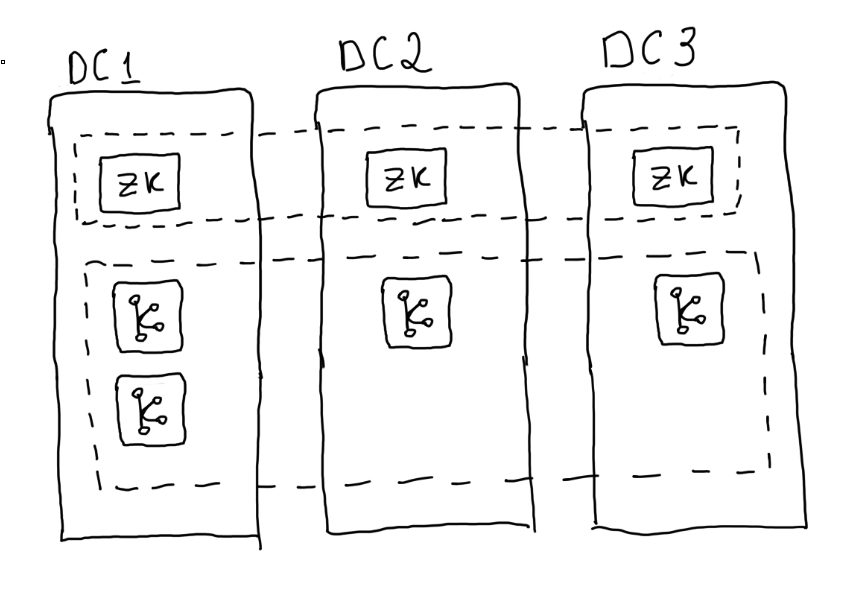 DC1 DC2 DC3
ZK ZK ZK